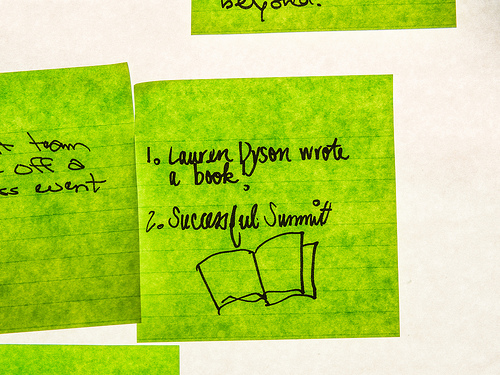 beyond.
team
off a
ss event
1. Lauren Dyson wrote
a book,
2. Successful Summit